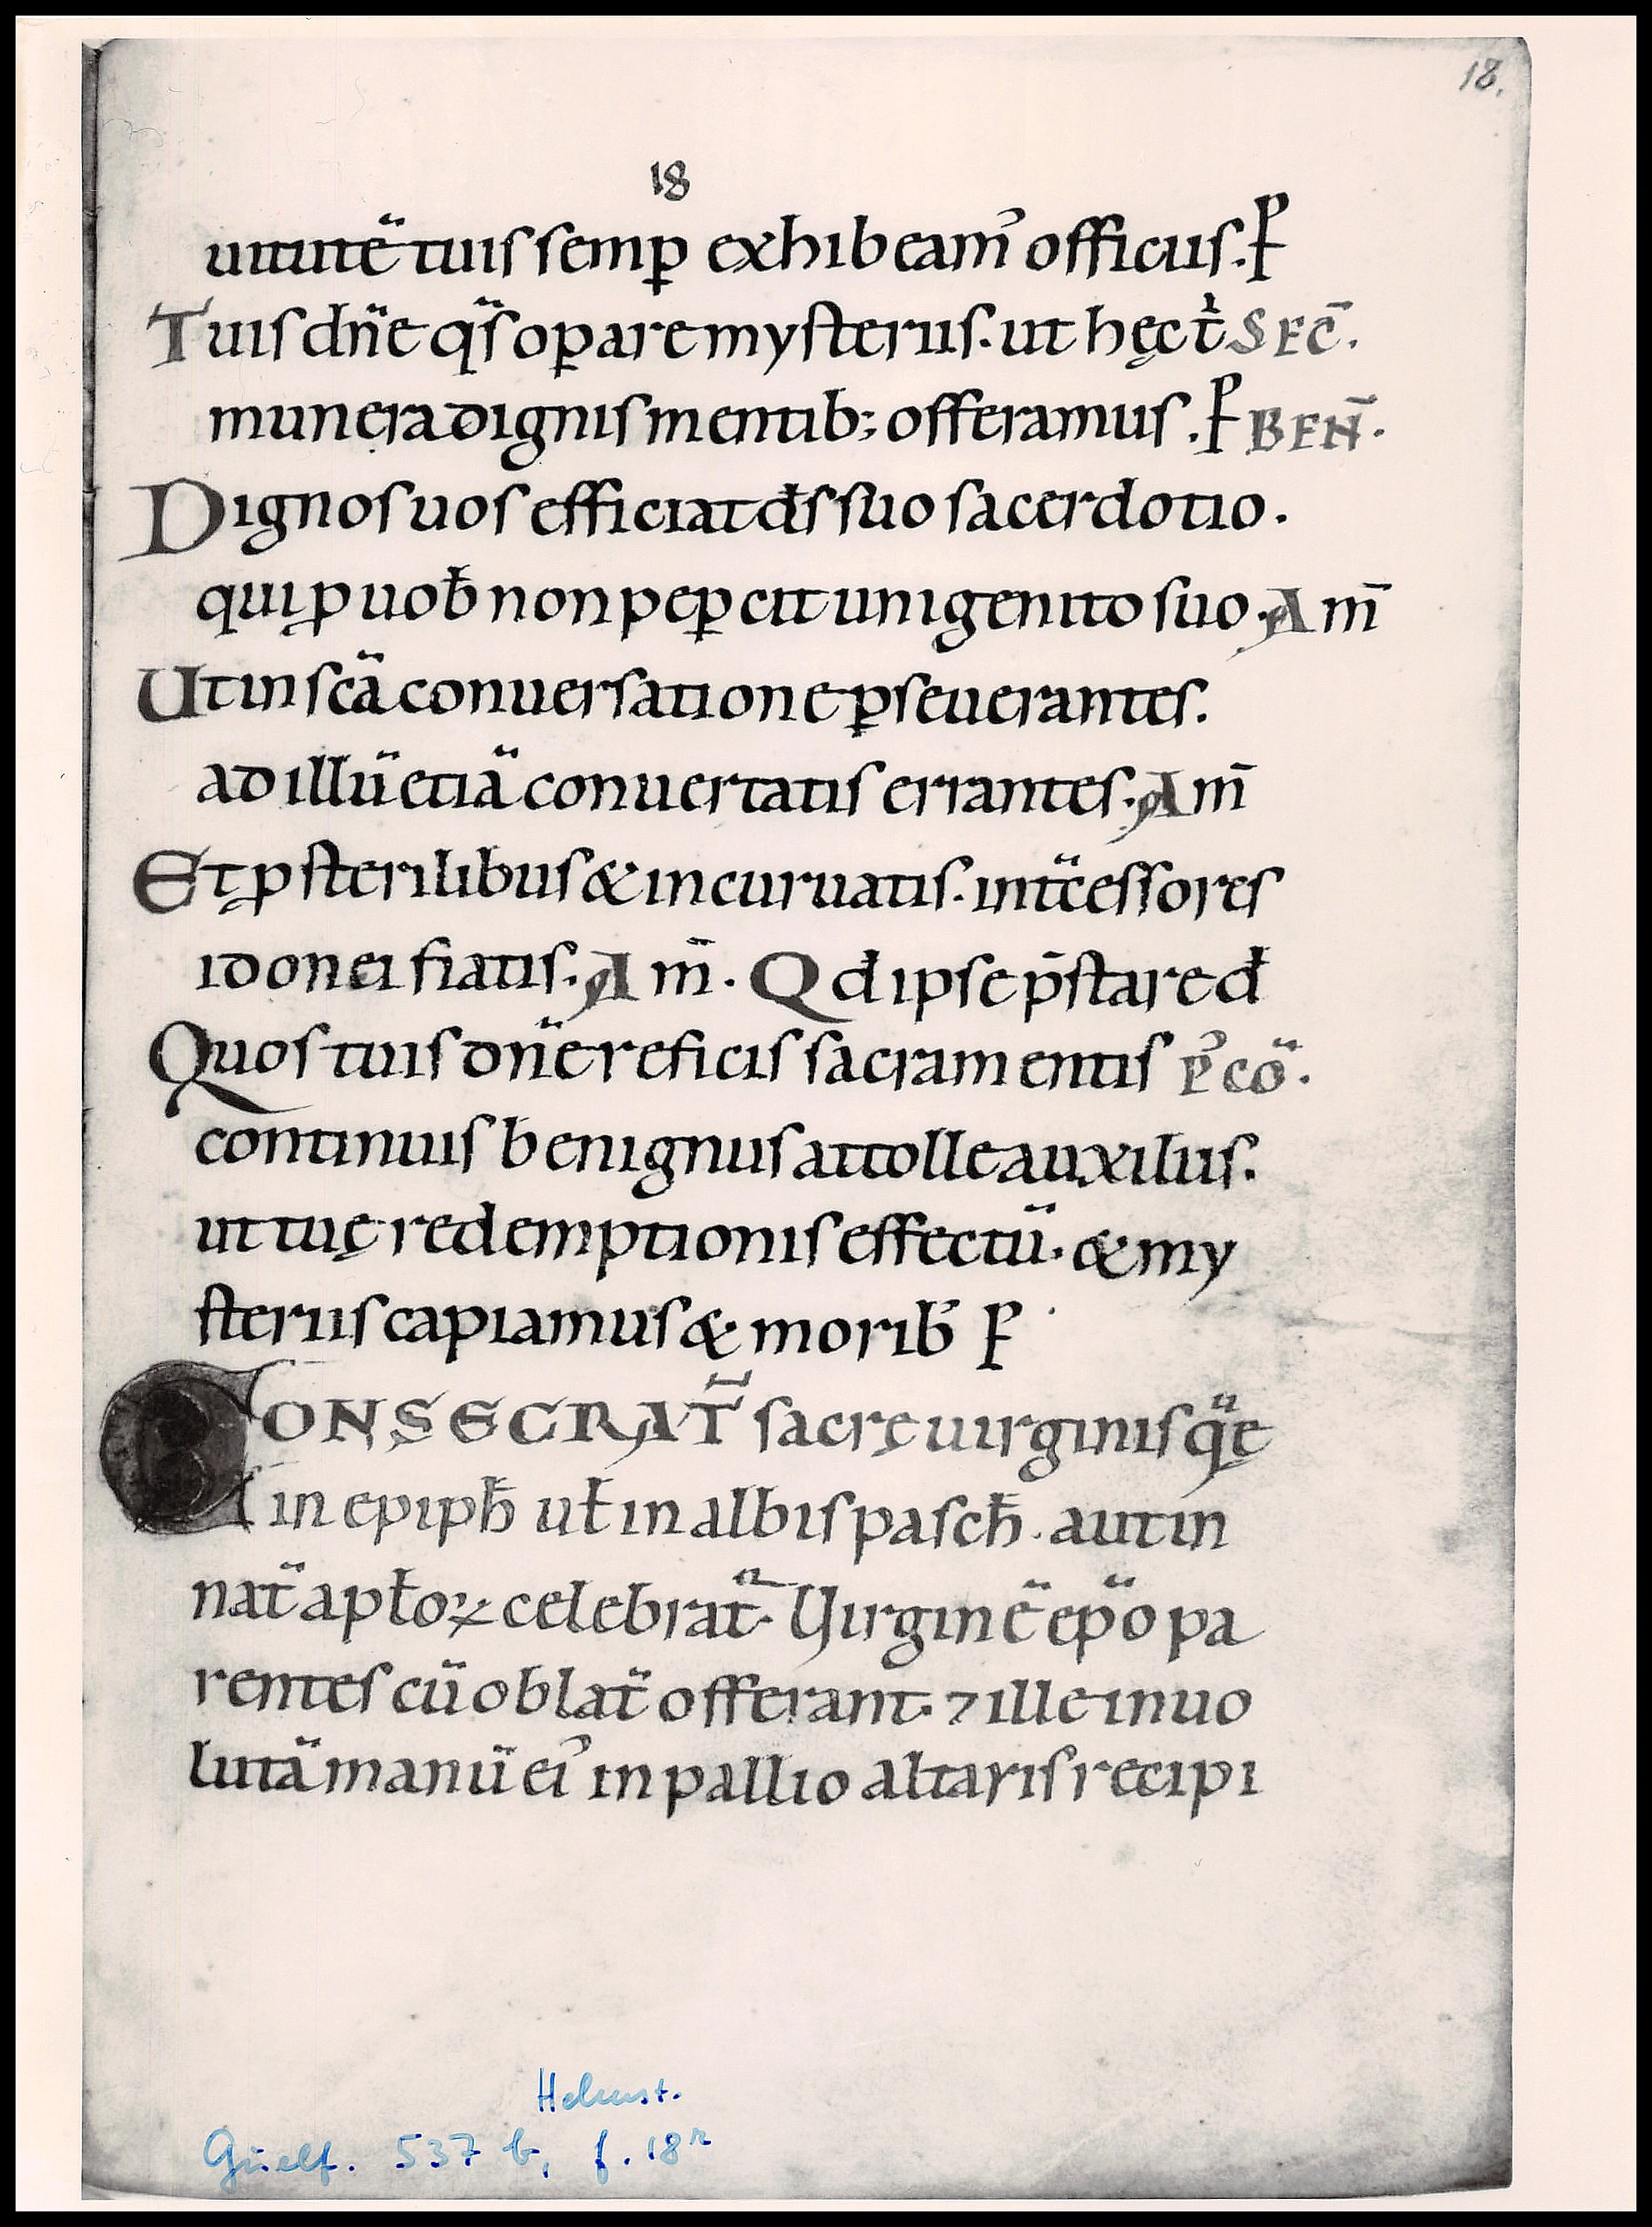 18.
18
uirtutē tuis semꝑ exhibeamꝰ officiis. P̵
Tuis dn̄e q̄s oꝑare mysteriis. ut hęc t̄ SEC̄.
munera dignis mentib; offeramus. P̵ BEN̄.
Dignos uos efficiat d̄s suo sacerdotio.
qui ꝓ uob̄ non peꝑcit unigenito suo. Am̄
Ut in sc̄ā conuersatione ꝑseuerantes.
ad illū etiā conuertatis errantes. Am̄
Et ꝓ sterilibus & incuruatis. int̄cessores
idonei fiatis. Am̄. Qđ ipse p̄stare đ
Quos tuis dn̄e reficis sacramentis Pꝰ cō.
continuis benignus attolle auxiliis.
ut tuę redemptionis effectū. & my
steriis capiamus & morib̄ P̵
CONSECRAT̄ sacrę uirginis q̄ę
in epiph̄ uł in albis pasch̄. aut in
nat̄ apłoꝝ celebrat̄. Virginē ep̄o pa
rentes cū oblat̄ offerant. ⁊ ille inuo
lutā manū eiꝰ in pallio altaris recipi
Helmst.
Guelf. 537 b, f. 18r